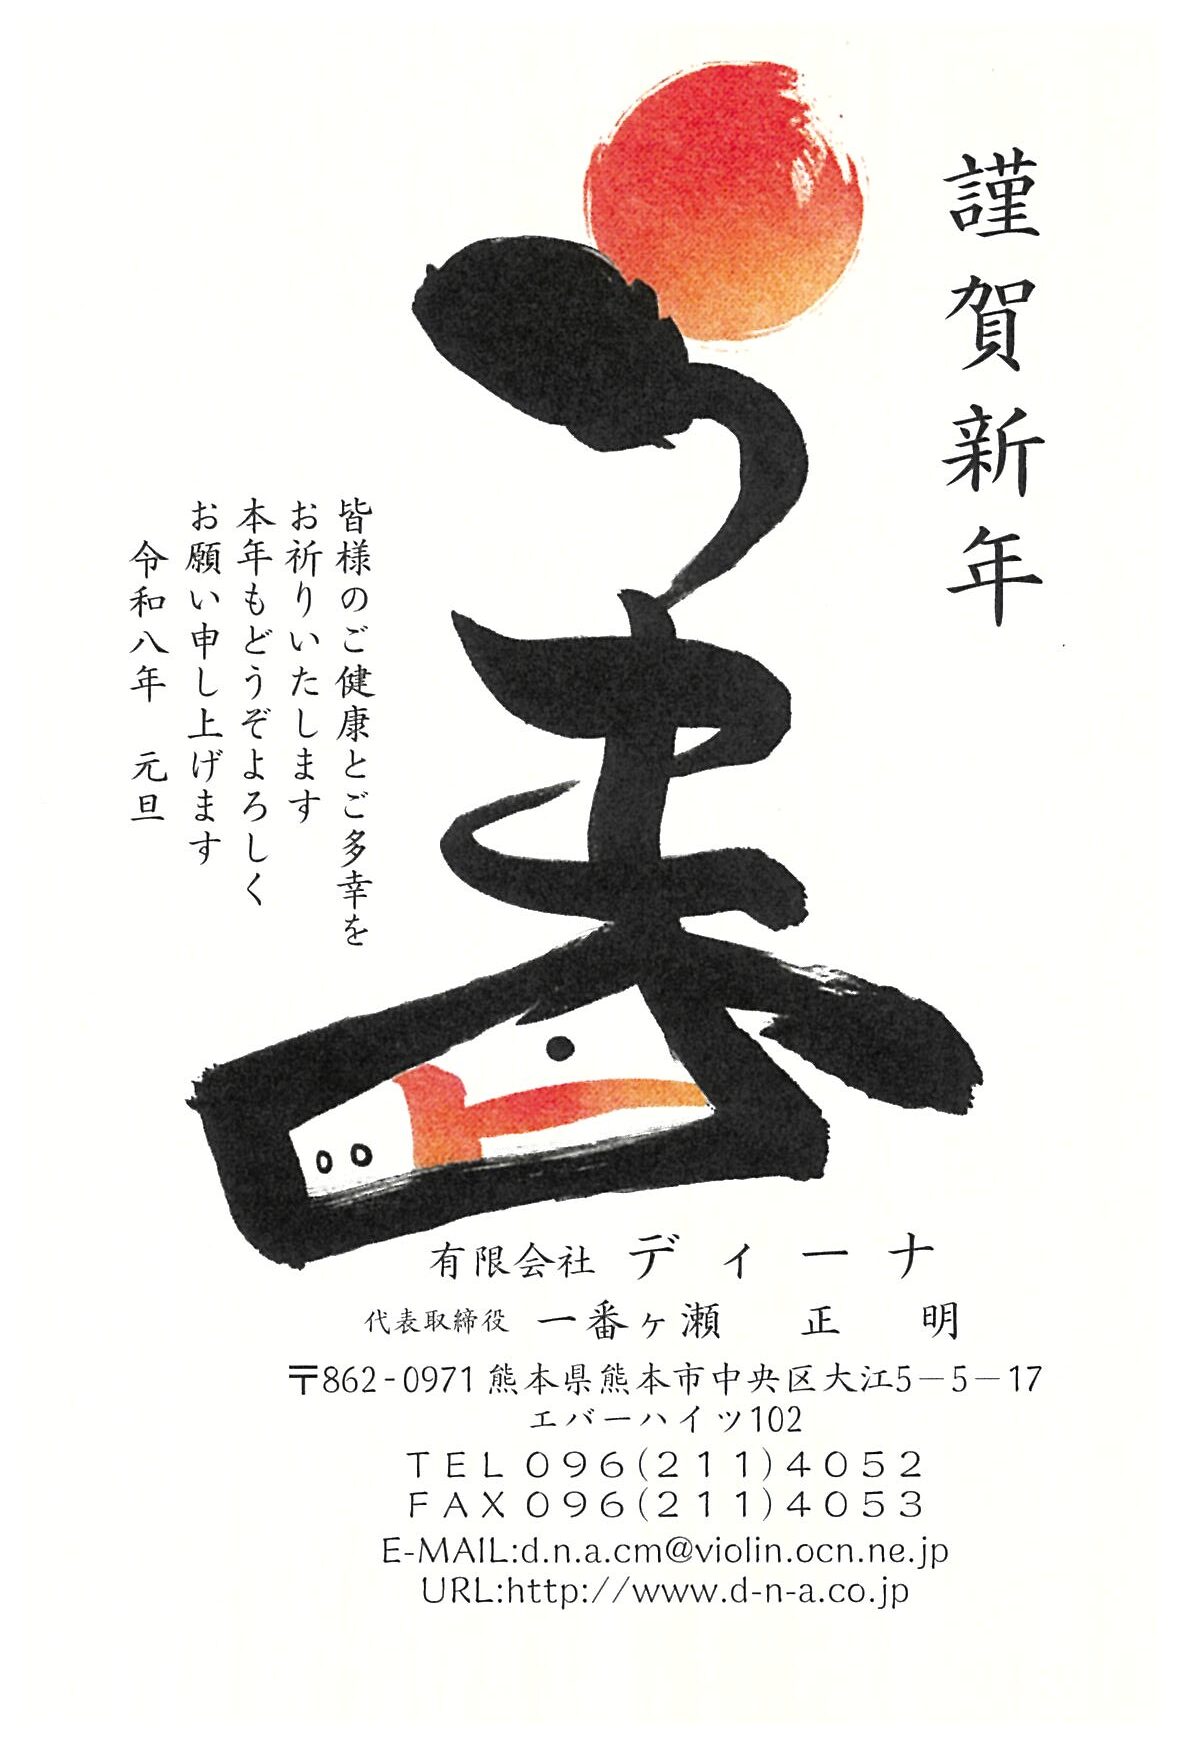 謹賀新年
皆様のご健康とご多幸を
お祈りいたします
本年もどうぞよろしく
お願い申し上げます
令和八年　元旦
有限会社 ディーナ
代表取締役 一番ヶ瀬　正　明
〒862-0971 熊本県熊本市中央区大江5－5－17
エバーハイツ102
ＴＥＬ ０９６(２１１)４０５２
ＦＡＸ ０９６(２１１)４０５３
E-MAIL:d.n.a.cm@violin.ocn.ne.jp
URL:http://www.d-n-a.co.jp